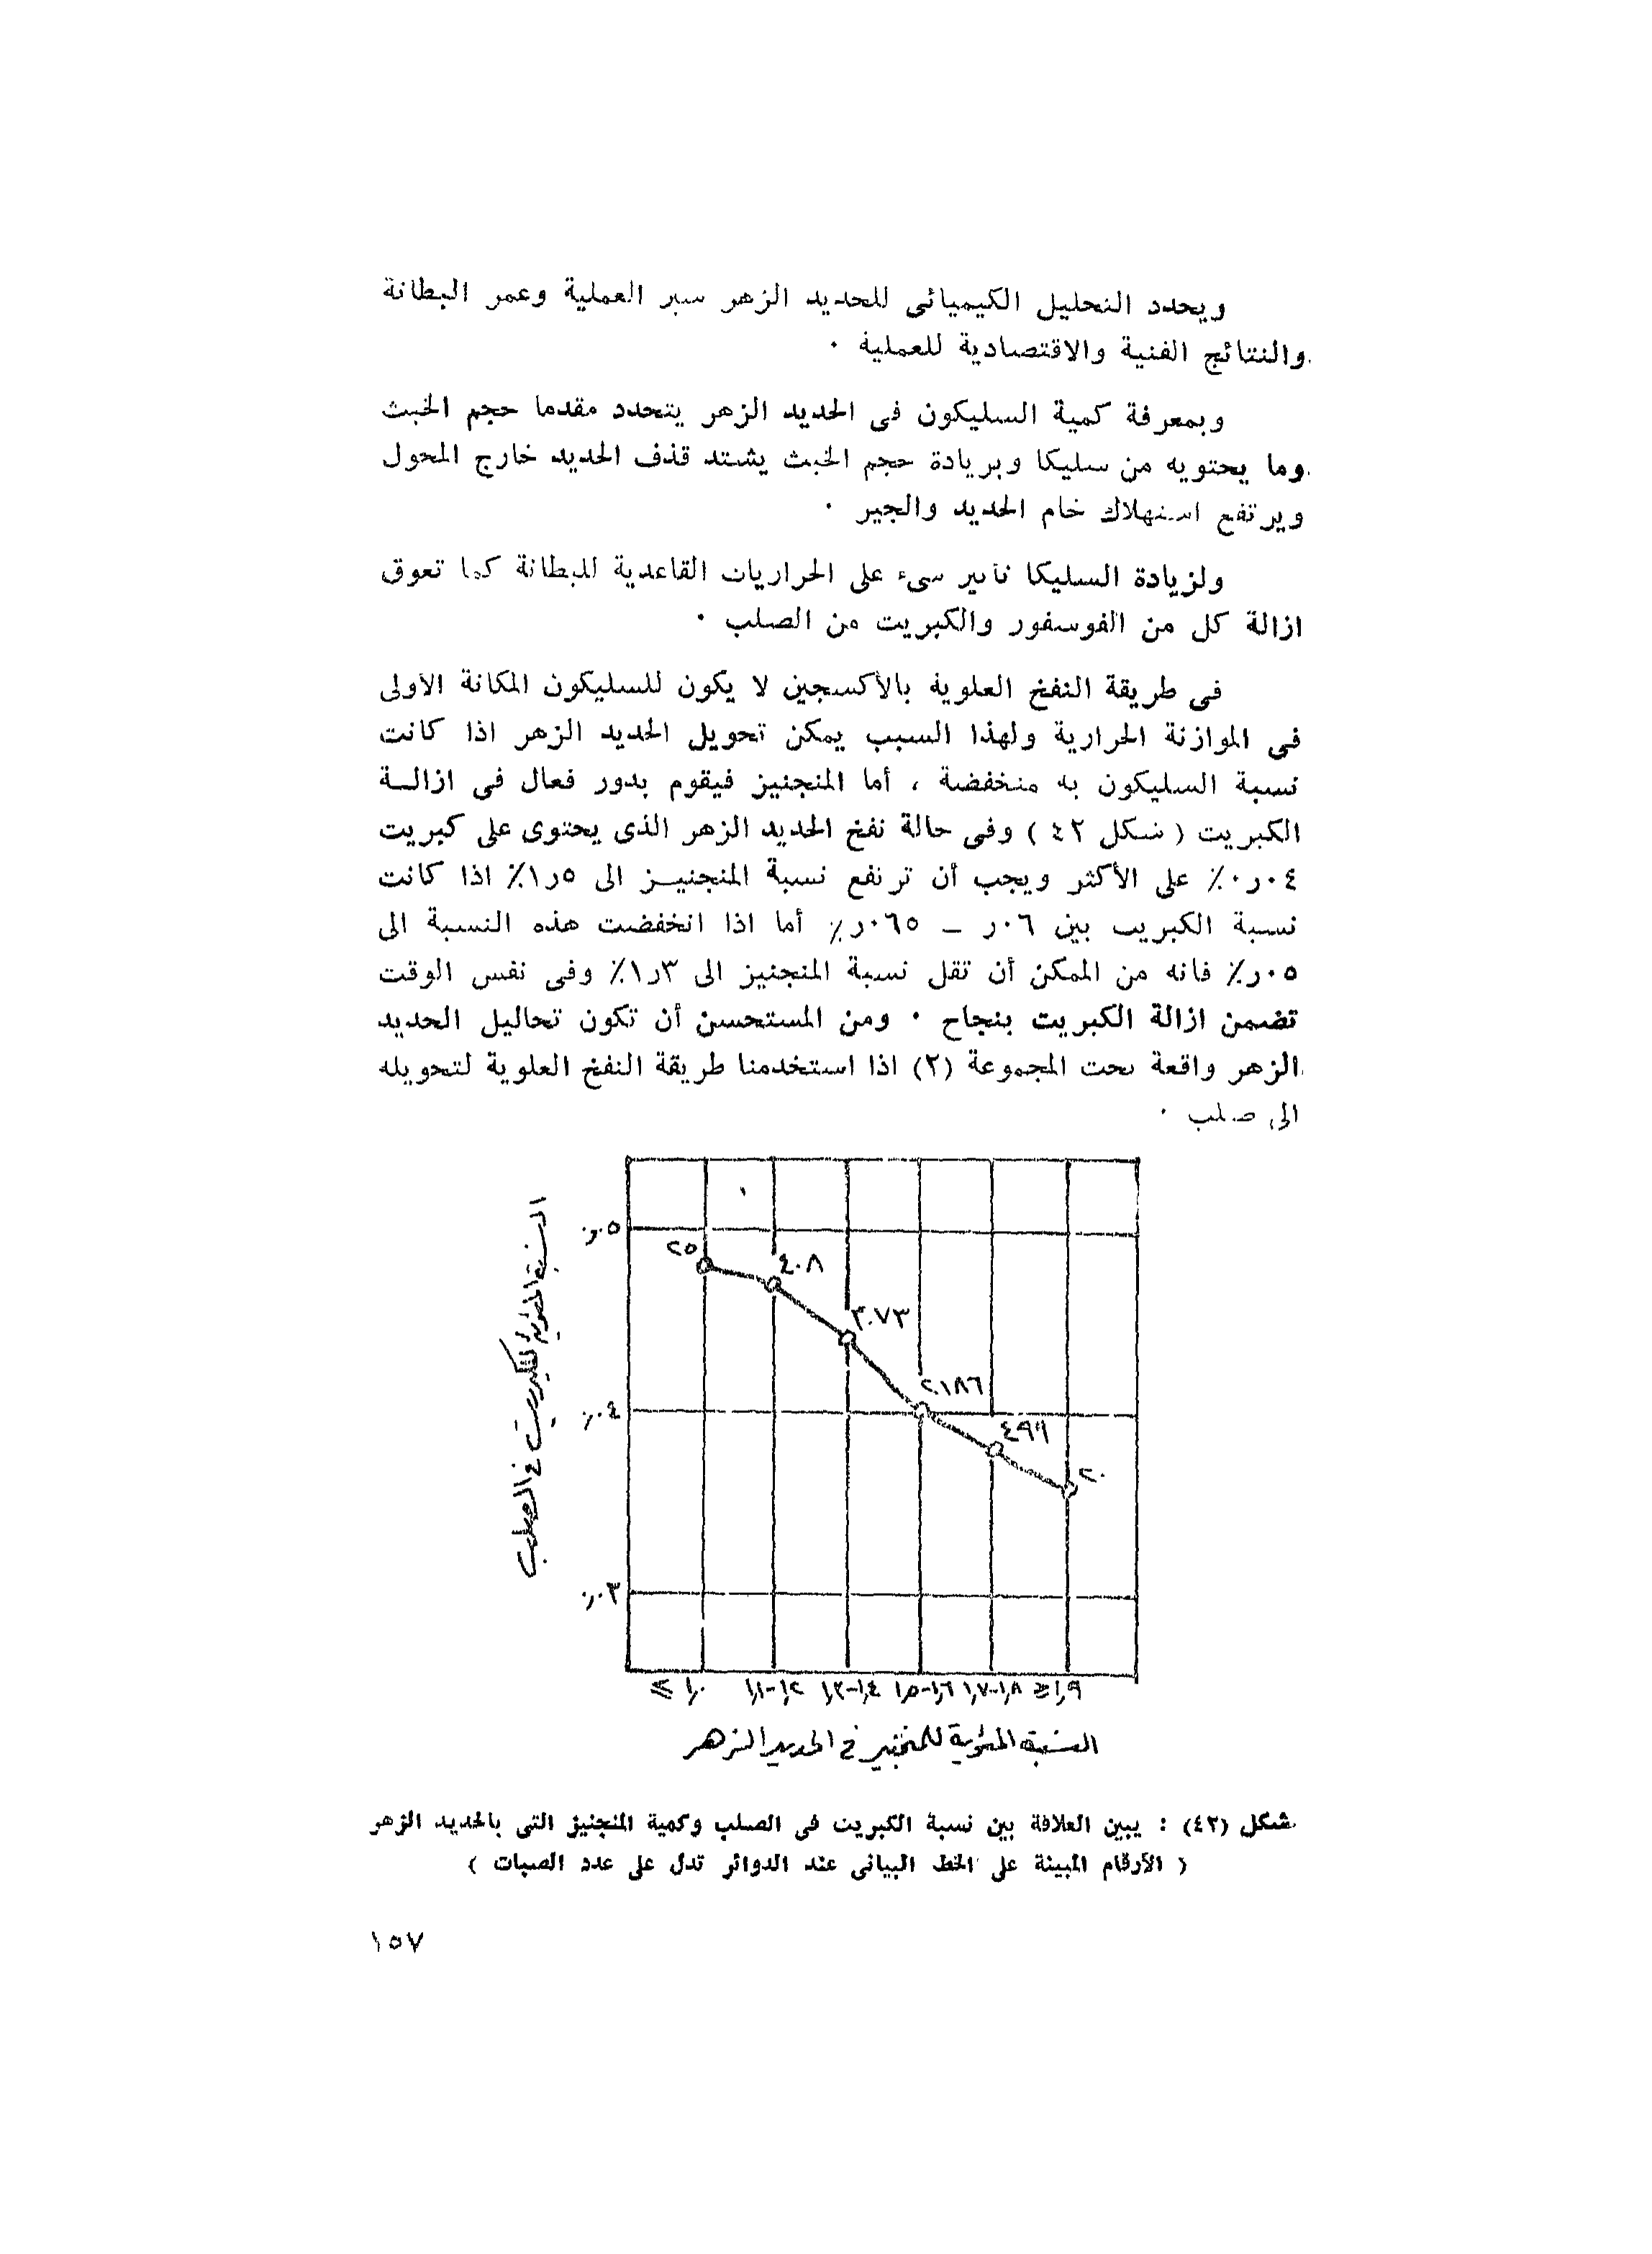 ويحدد التحليل الكيميائى للحديد الزهر سير العملية وعمر البطانة
والنتائج الفنية والاقتصادية للعملية ·
وبمعرفة كمية السليكون فى الحديد الزهر يتحدد مقدما حجم الخبث
وما يحتويه من سليكا وبزيادة حجم الخبث يشتد قذف الحديد خارج المحول
ويرتفع استهلاك خام الحديد والجير ·
ولزيادة السليكا تأثير سىء على الحراريات القاعدية للبطانة كما تعوق
ازالة كل من الفوسفور والكبريت من الصلب ·
فى طريقة النفخ العلوية بالأكسجين لا يكون للسليكون المكانة الاولى
فى الموازنة الحرارية ولهذا السبب يمكن تحويل الحديد الزهر اذا كانت
نسبة السليكون به منخفضة ، أما المنجنيز فيقوم بدور فعال فى ازالة
الكبريت ( شكل ٤٢ ) وفى حالة نفخ الحديد الزهر الذى يحتوى على كبريت
٠٤ر٠٪ على الأكثر ويجب أن ترتفع نسبة المنجنيز الى ٥ر١٪ اذا كانت
نسبة الكبريت بين ٠٦ر – ٠٦٥ر٪ أما اذا انخفضت هذه النسبة الى
٠٥ر٪ فانه من الممكن أن تقل نسبة المنجنيز الى ٣ر١٪ وفى نفس الوقت
تضمن ازالة الكبريت بنجاح · ومن المستحسن أن تكون تحاليل الحديد
الزهر واقعة تحت المجموعة (٢) اذا استخدمنا طريقة النفخ العلوية لتحويله
الى صلب ·
النسبة المئوية للكبريت فى الصلب
٠٫٠٥
٢٥
٤٠٨
٠٫٠٤
٤٩٦
٢٠
٠٫٠٣
≤ ١٫٠ ١٫١-١٫٢ ١٫٣-١٫٤ ١٫٥-١٫٦ ١٫٧-١٫٨ ≥ ١٫٩
النسبة المئوية للمنجنيز فى الحديد الزهر
شكل (٤٢) : يبين العلاقة بين نسبة الكبريت فى الصلب وكمية المنجنيز التى بالحديد الزهر
( الأرقام المبينة على الخط البيانى عند الدوائر تدل على عدد الصبات )
١٥٧